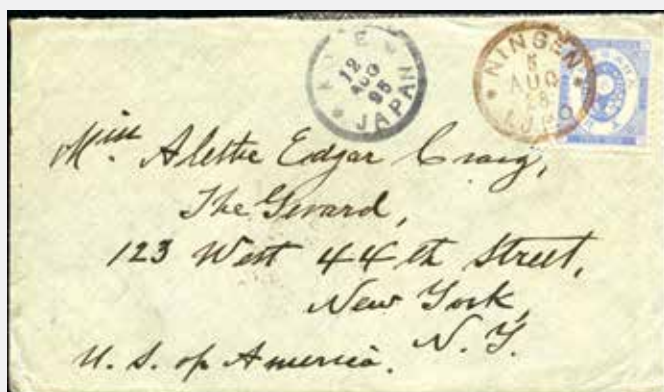 KOBE
12
AUG
95
JAPAN
NINGEN
5
AUG
I.J.P.O
Miss Alettie Edgar Craig,
The Gerard,
123 West 44th Street,
New York,
N. Y.
U. S. of America.